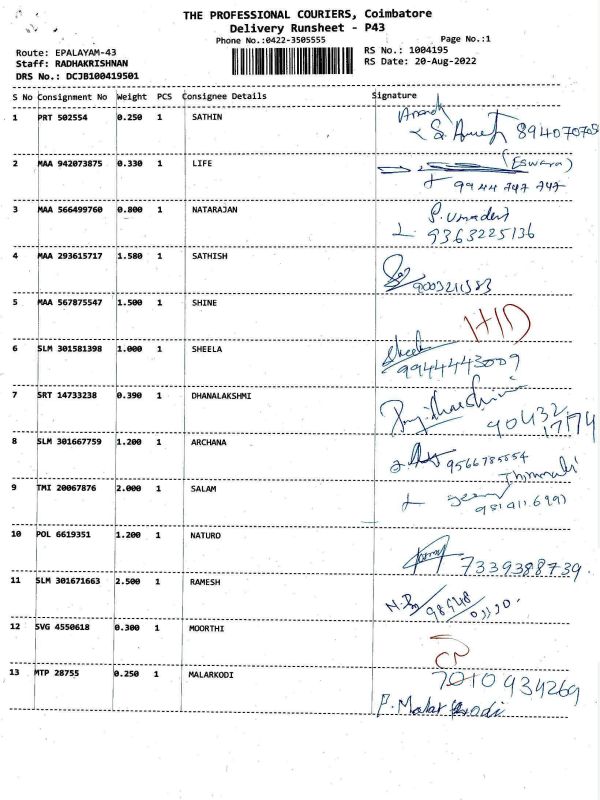 THE PROFESSIONAL COURIERS, Coimbatore
Delivery Runsheet - P43
Phone No.:0422-3505555 Page No.:1
Route: EPALAYAM-43 RS No.: 1004195
Staff: RADHAKRISHNAN RS Date: 20-Aug-2022
DRS No.: DCJB100419501
S No Consignment No Weight PCS Consignee Details Signature
1 PRT 502554 0.250 1 SATHIN Anand
2 MAA 942073875 0.330 1 LIFE (Eswara)
9944 747 747
3 MAA 566499760 0.800 1 NATARAJAN
9363225136
4 MAA 293615717 1.580 1 SATHISH
9003211383
5 MAA 567875547 1.500 1 SHINE
6 SLM 301581398 1.000 1 SHEELA Sheela
9944443009
7 SRT 14733238 0.390 1 DHANALAKSHMI
90432
17174
8 SLM 301667759 1.200 1 ARCHANA
9 TMI 20067876 2.000 1 SALAM
10 POL 6619351 1.200 1 NATURO
7339388739.
11 SLM 301671663 2.500 1 RAMESH
12 SVG 4550618 0.300 1 MOORTHI
13 MTP 28755 0.250 1 MALARKODI 7010934269
P. Malarkodi